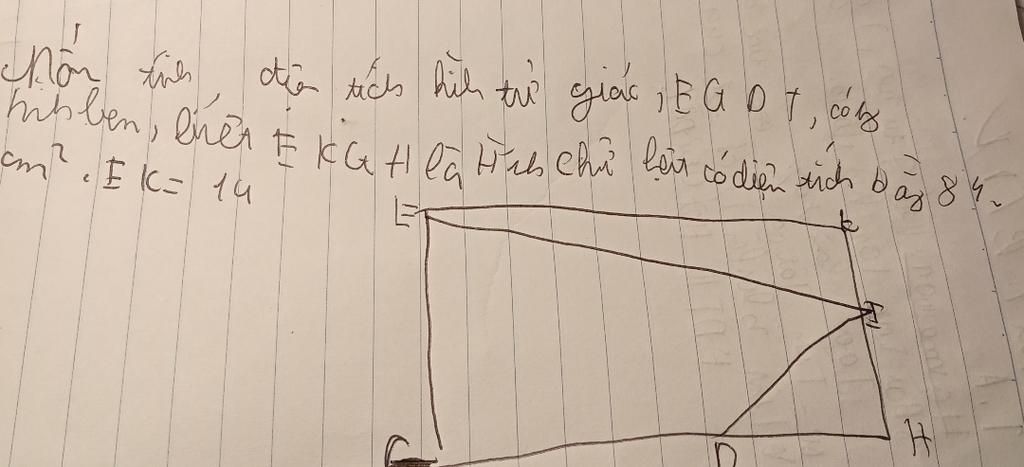 tính diện tích hình tứ giác, E G D I, cóng
hình bên, biết E K G H là Hình chữ
có diện tích bằng 84
cm². E K = 14
E
K
I
G
D
H